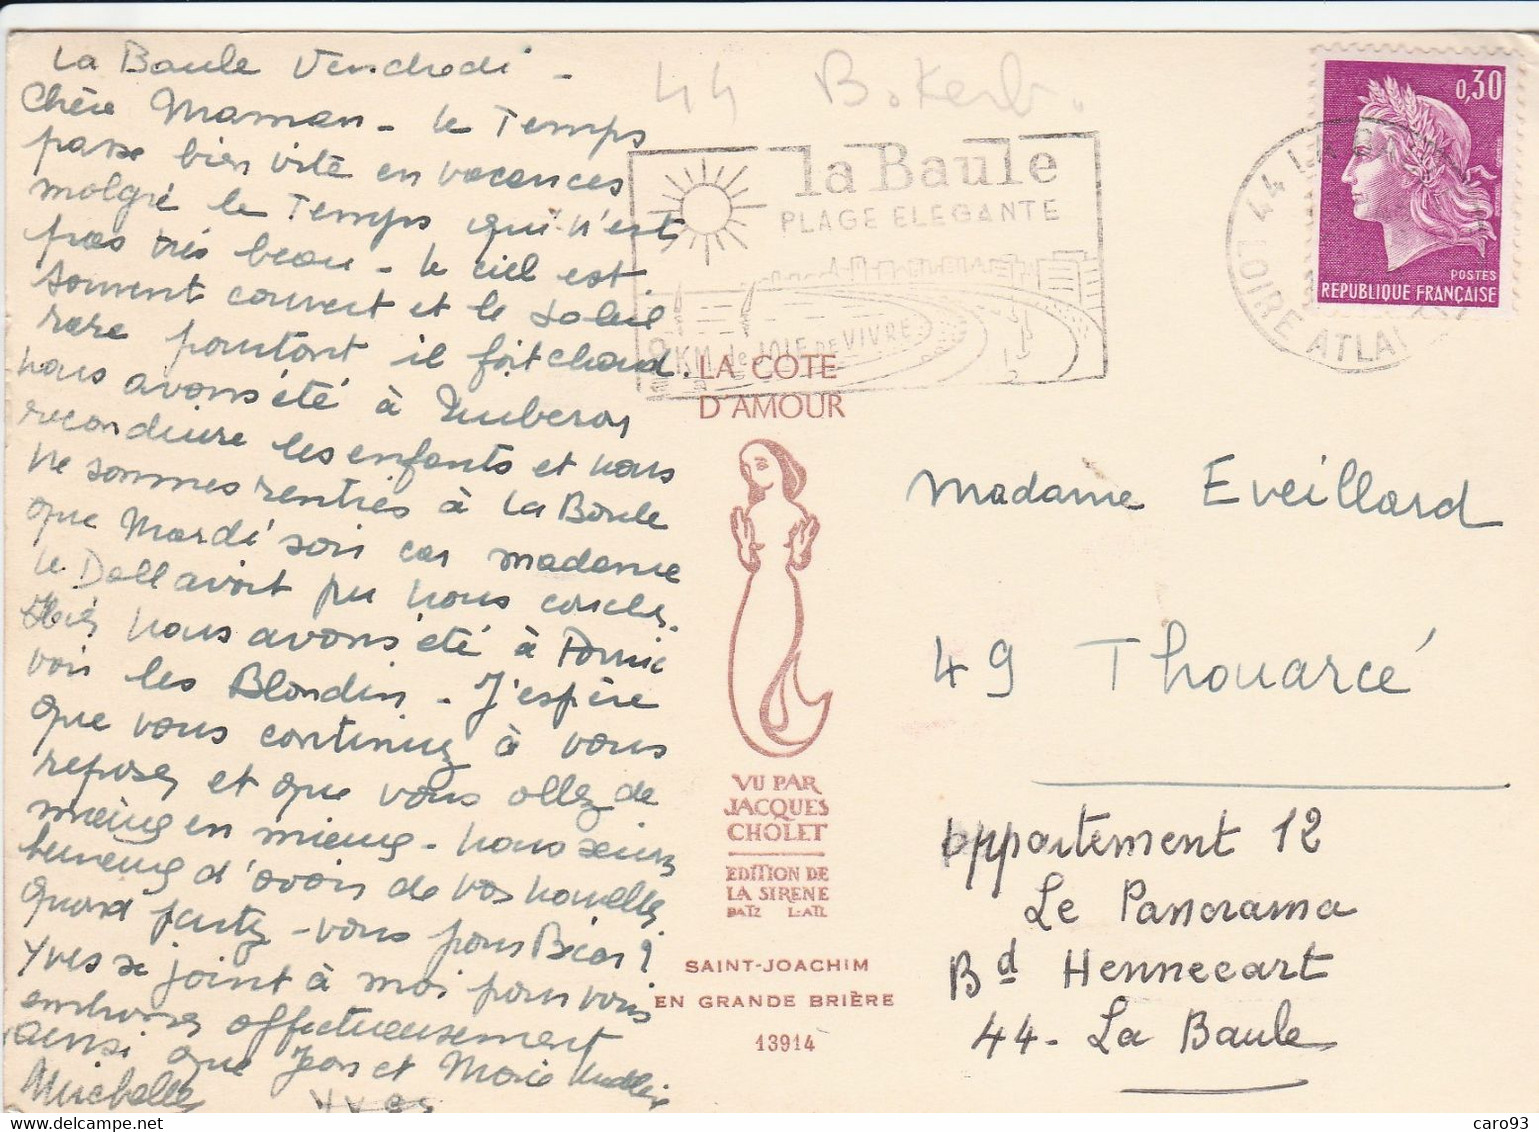 La Baule Vendredi -
Chère Maman - le Temps
passe bien vite en vacances
malgré le Temps qui n'est
pas très beau - le ciel est
souvent couvert et le soleil
rare pourtant il fait chaud.
nous avons été à
reconduire les enfants et nous
ne sommes rentrés à La Baule
que Mardi soir car madame
le Dall avait pu nous coucher.
Hier nous avons été à Pornic
voir les Blondin - J'espère
que vous continuez à vous
reposer et que vous allez de
mieux en mieux - nous serions
heureux d'avoir de vos nouvelles
Quand partez-vous pour
Yves se joint à moi pour vous
embrasser affectueusement
ainsi que Jean et Marie
Michelle Yves
44 B. Kerb.
la Baule
PLAGE ELEGANTE
9 KM de JOIE DE VIVRE
44 LA BAULE
LOIRE ATLANTIQUE
0,30
POSTES
REPUBLIQUE FRANÇAISE
LA COTE
D'AMOUR
VU PAR
JACQUES
CHOLET
EDITION DE
LA SIRENE
BATZ L-ATL
SAINT-JOACHIM
EN GRANDE BRIÈRE
13914
Madame Eveillard
49 Thouarcé
appartement 12
Le Panorama
Bd Hennecart
44 - La Baule
caro93